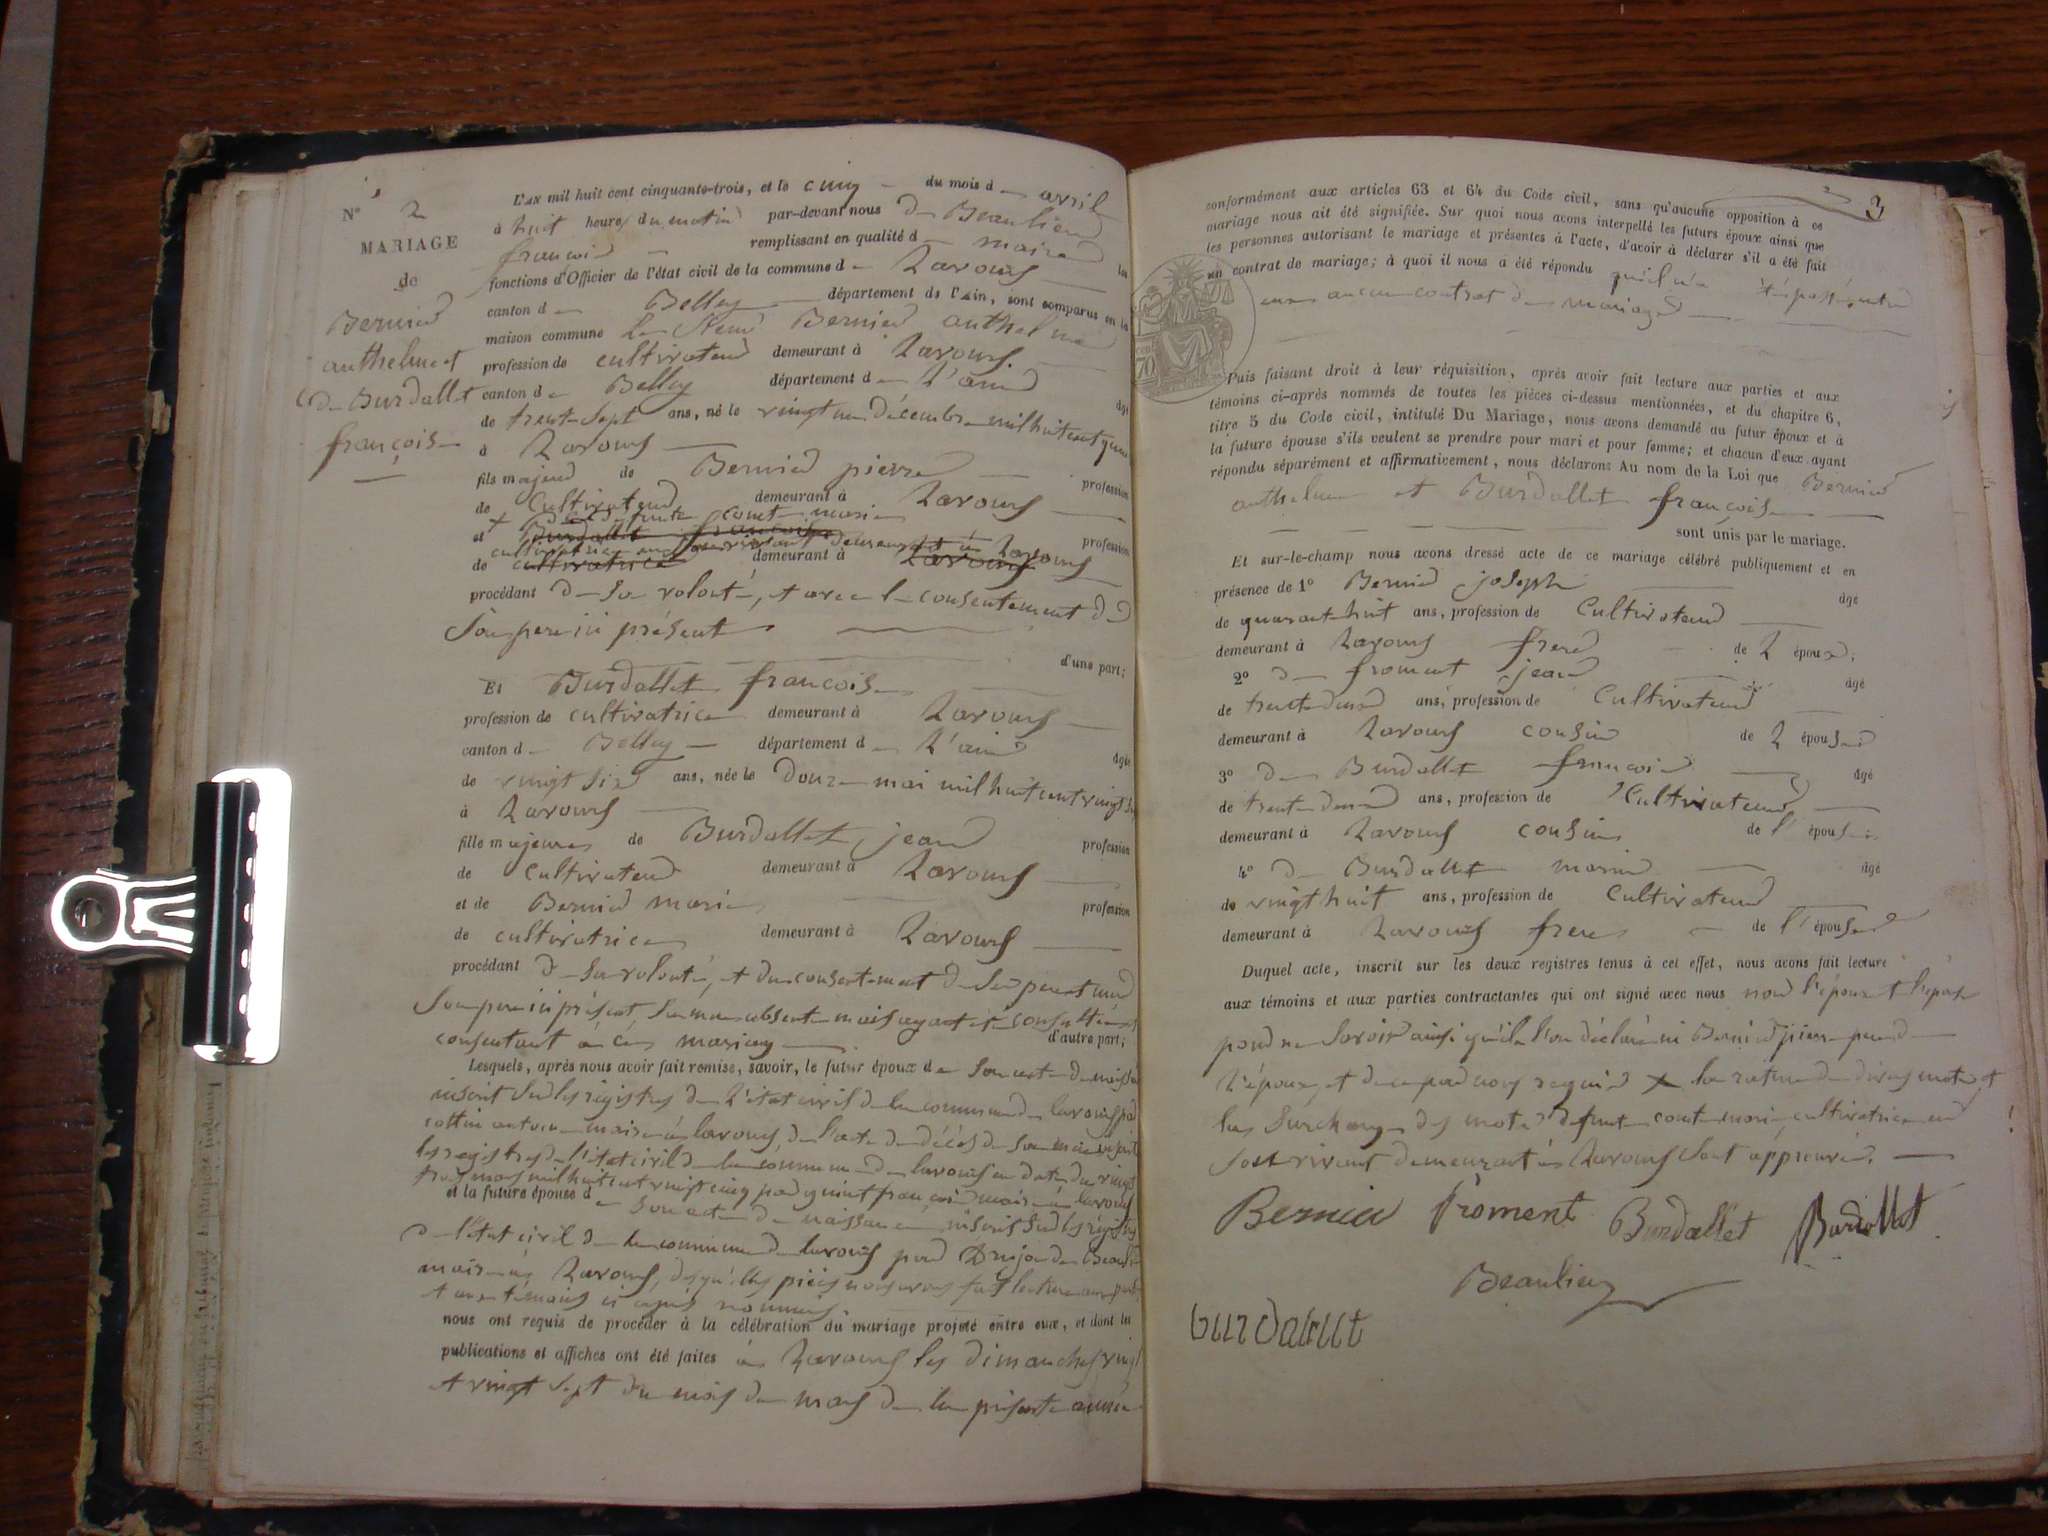 N° 2
MARIAGE
de
Bernier
anthelme et
de Burdallet
françoise
L'AN mil huit cent cinquante-trois, et le cinq du mois d avril
à huit heures du matin par-devant nous de Beaulieu
francois remplissant en qualité de maire les
fonctions d'Officier de l'état civil de la commune de Lavours
canton de Belley département de l'Ain, sont comparus en la
maison commune le sieur Bernier anthelme
profession de cultivateur demeurant à Lavours
canton de Belley département de L'ain âgé
de trente-Sept ans, né le vingt un décembre mil huit cent quinze
à Lavours
fils majeur de Bernier pierre profession
de Cultivateur demeurant à Lavours
et Burdallet francoise defunte cout marie profession
de cultivatrice cultivatrice en son vivant demeurant à Lavours demeurant à Lavours
procédant de Sa volonté, et avec le consentement de
Son pere ici présent
d'une part;
Et Burdallet francoise
profession de cultivatrice demeurant à Lavours
canton de Belley département de L'ain âgée
de vingt six ans, née le douze mai mil huit cent vingt
à Lavours
fille majeure de Burdallet jean profession
de Cultivateur demeurant à Lavours
et de Bernier marie profession
de cultivatrice demeurant à Lavours
procédant de Sa volonté, et du consentement de Ses pere et mere
Son pere ici présent, Sa mere absente mais ayant été consultée
consentant à ce mariage d'autre part;
Lesquels, après nous avoir fait remise, savoir, le futur époux de Son acte de naissance
inscrit Sur les registres de L'état civil de la commune de lavours par
cottin antoine maire à lavours, de l'acte de décès de Sa mere
les registres de l'état civil de la commune de lavours en date du vingt
mil huit cent vingt cinq par francois maire à lavours
et la future épouse de Son acte de naissance inscrit Sur les régistres
de l'état civil de la commune de lavours par Beaulieu
maire à Lavours, desquelles pièces nous avons fait lecture aux parties
et aux témoins ci après nommés.
nous ont requis de procéder à la célébration du mariage projeté entre eux, et dont les
publications et affiches ont été faites à Lavours les dimanches vingt
et vingt Sept du mois de mars de la présente année
3
conformément aux articles 63 et 64 du Code civil, sans qu'aucune opposition à ce
mariage nous ait été signifiée. Sur quoi nous avons interpellé les futurs époux ainsi que
les personnes autorisant le mariage et présentes à l'acte, d'avoir à déclarer s'il a été fait
un contrat de mariage; à quoi il nous a été répondu qu'il n'a été passé entre
eux aucun contrat de mariage
Puis faisant droit à leur réquisition, après avoir fait lecture aux parties et aux
témoins ci-après nommés de toutes les pièces ci-dessus mentionnées, et du chapitre 6,
titre 5 du Code civil, intitulé Du Mariage, nous avons demandé au futur époux et à
la future épouse s'ils veulent se prendre pour mari et pour femme; et chacun d'eux ayant
répondu séparément et affirmativement, nous déclarons Au nom de la Loi que Bernier
anthelme et Burdallet françoise
sont unis par le mariage.
Et sur-le-champ nous avons dressé acte de ce mariage célébré publiquement et en
présence de 1° Bernier joseph âgé
de quarante huit ans, profession de Cultivateur
demeurant à Lavours frere de L époux;
2° de froment jean âgé
de trente deux ans, profession de Cultivateur
demeurant à Lavours cousin de L épouse
3° de Burdallet francois âgé
de trente deux ans, profession de Cultivateur
demeurant à Lavours cousin de l' épouse
4° de Burdallet marin âgé
de vingt huit ans, profession de Cultivateur
demeurant à Lavours frere de l' épouse
Duquel acte, inscrit sur les deux registres tenus à cet effet, nous avons fait lecture
aux témoins et aux parties contractantes qui ont signé avec nous non l'époux et l'épouse
pour ne Savoir ainsi qu'ils l'on déclaré ni Bernier pierre pere de
L'époux, et de ce par nous requis la rature de mots et
la Surcharge des mots defunte cout marie cultivatrice en
Son vivant demeurant à Lavours Sont approuvé.
Bernier froment Burdallet Burdallet
Beaulieu
burdallet